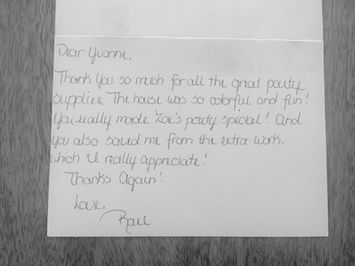 Dear Yvonne,
Thank you so much for all the great party
supplies. The house was so colorful and fun!
You really made Zoe's party special! And
you also saved me from the extra work,
which I really appreciate!
Thanks Again!
Love,